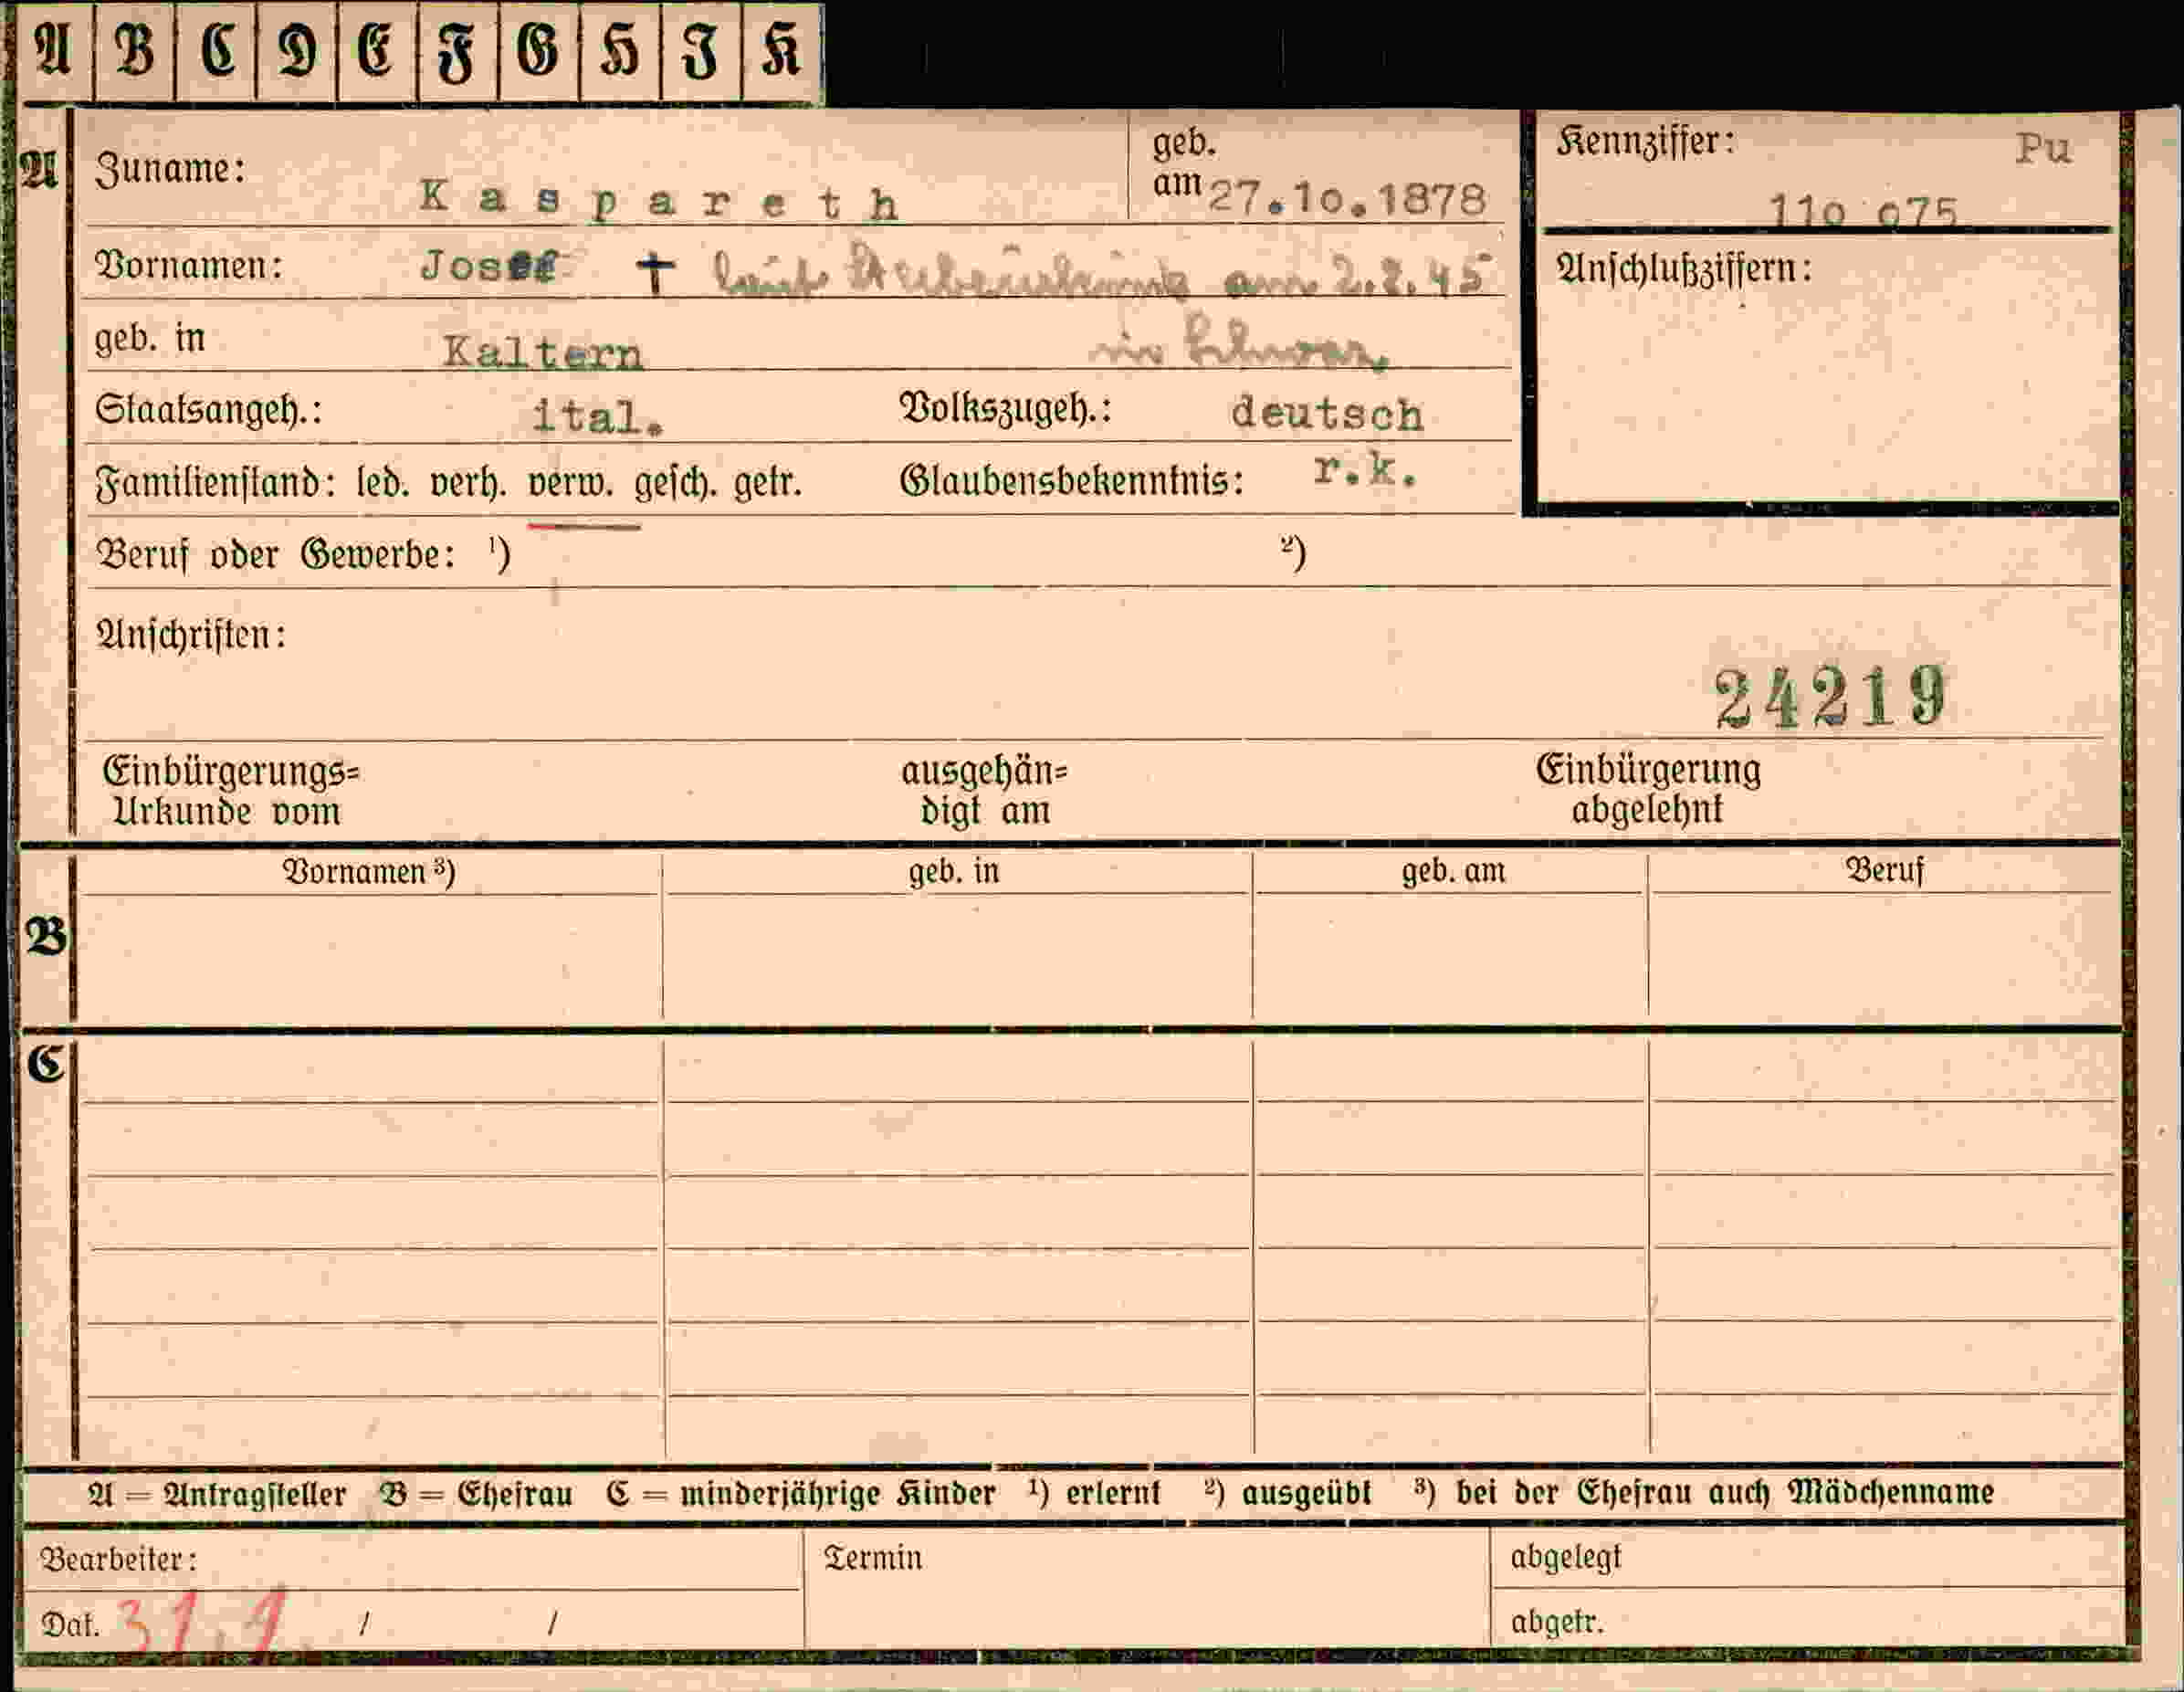 A B C D E F G H I K
A
Zuname: Kaspareth geb. am 27.10.1878
Kennziffer: Pu
110 075
Vornamen: Josef † laut Sterbeurkunde am 2.2.45
Anschlußziffern:
geb. in Kaltern in Schwaz.
Staatsangeh.: ital. Volkszugeh.: deutsch
Familienstand: led. verh. verw. gesch. getr. Glaubensbekenntnis: r.k.
Beruf oder Gewerbe: ¹) ²)
Anschriften:
24219
Einbürgerungs= ausgehän= Einbürgerung
Urkunde vom digt am abgelehnt
Vornamen ³) geb. in geb. am Beruf
B
C
A = Antragsteller B = Ehefrau C = minderjährige Kinder ¹) erlernt ²) ausgeübt ³) bei der Ehefrau auch Mädchenname
Bearbeiter: Termin abgelegt
Dat. 31.1. / / abgetr.